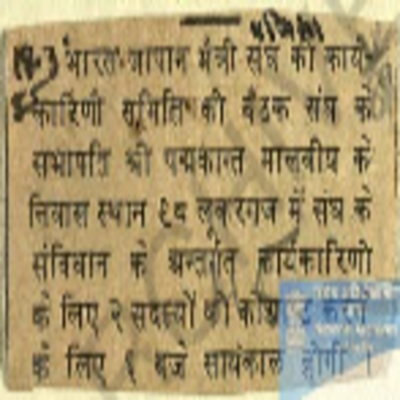 भारत-जापान मैत्री संघ की कार्य-
कारिणी समिति की बैठक संघ के
सभापति श्री पद्मकान्त मालवीय के
निवास स्थान १८ लूकरगंज में संघ के
संविधान के अन्तर्गत कार्यकारिणी
के लिए २ सदस्यों को कोआप्ट करने
के लिए ६ बजे सायंकाल होगी ।